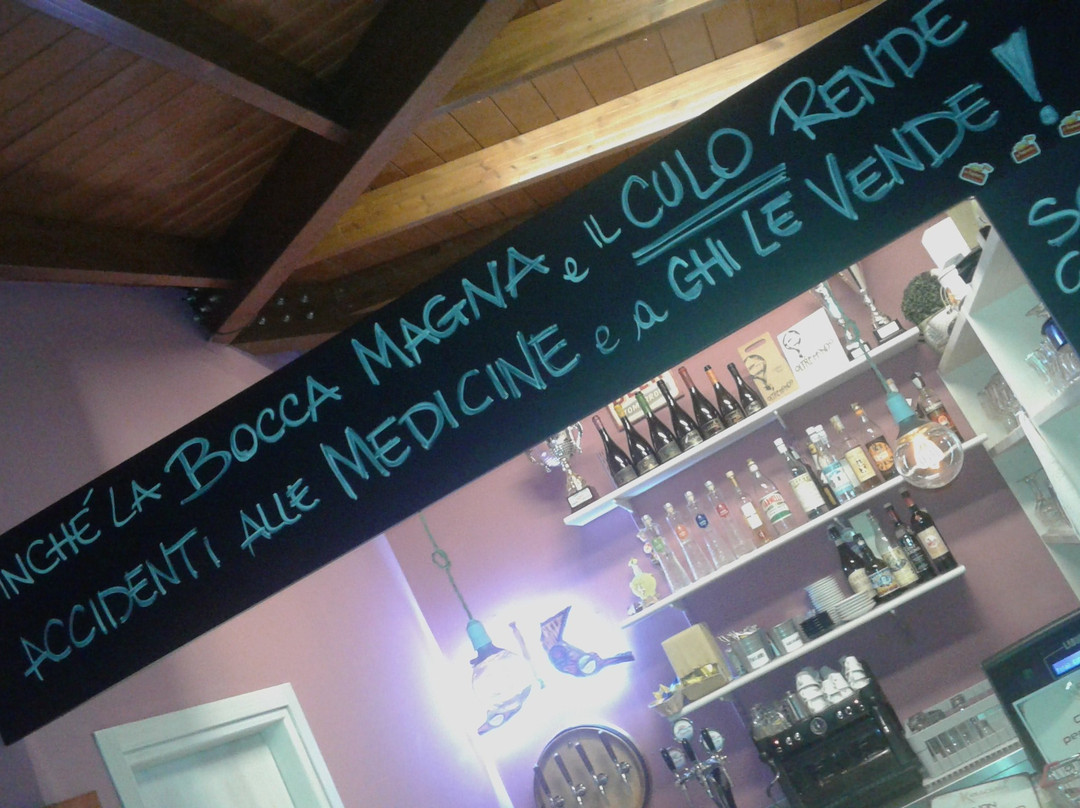 INCHÉ LA BOCCA MAGNA e IL CULO RENDE
ACCIDENTI ALLE MEDICINE e a CHI LE VENDE!